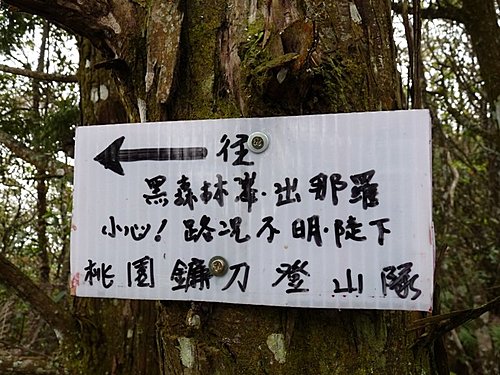 ← 往
黑森林峯.出那羅
小心!路况不明.陡下
桃園鐮刀澄山隊